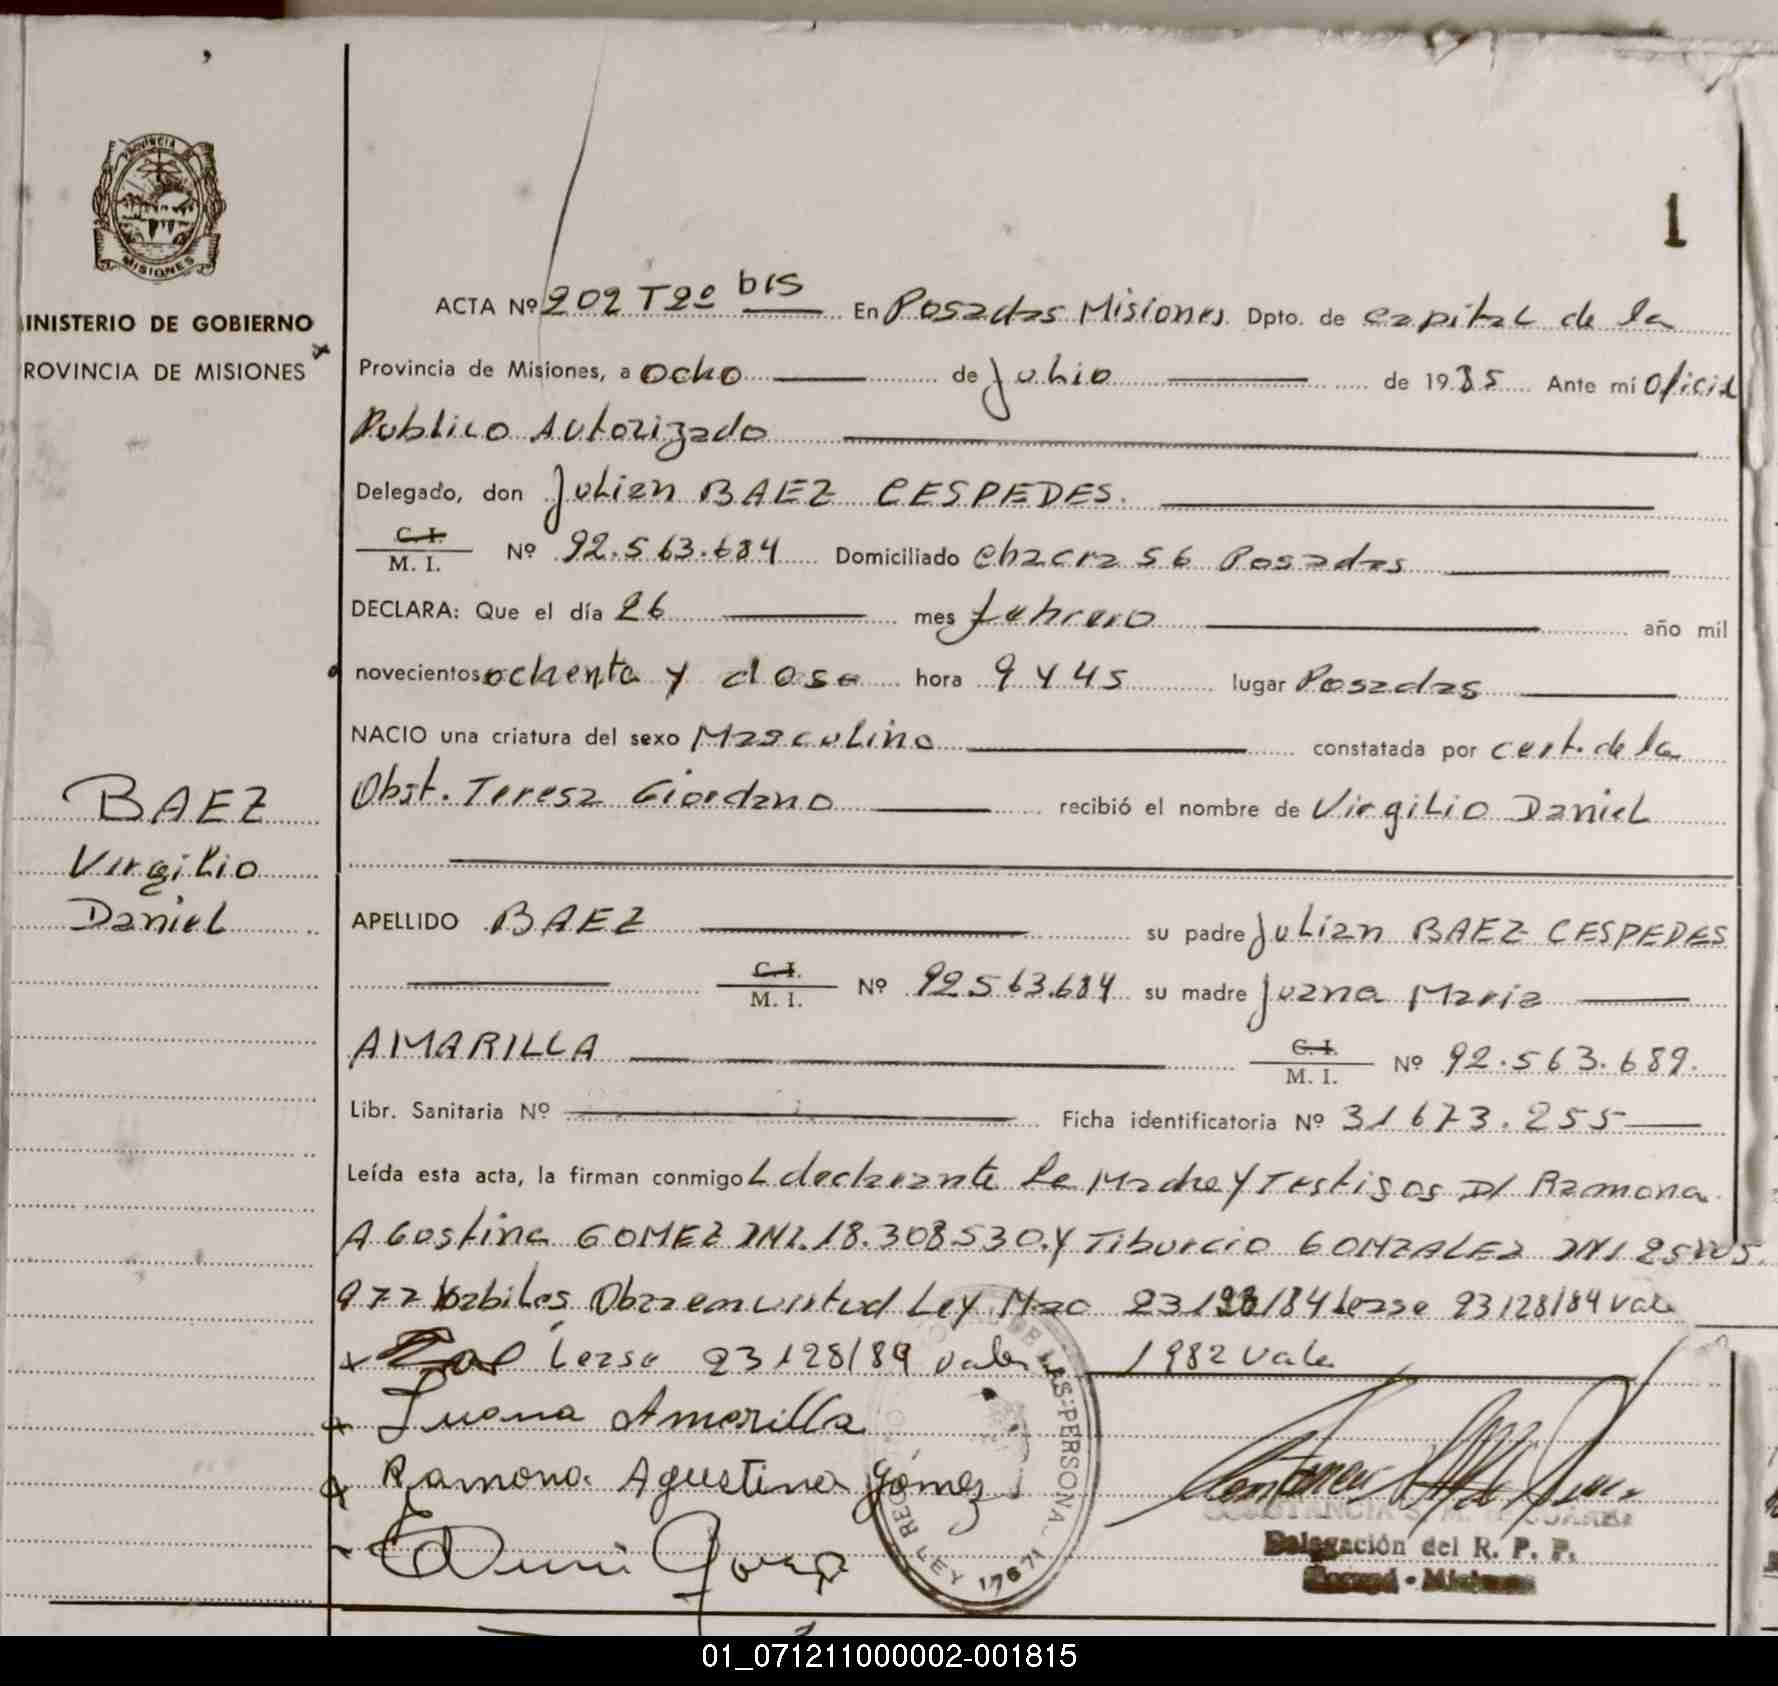 1
PROVINCIA DE
MISIONES
INISTERIO DE GOBIERNO
ROVINCIA DE MISIONES
ACTA Nº 202 T2º bis En Posadas Misiones Dpto. de capital de la
Provincia de Misiones, a ocho de Julio de 1985 Ante mí Oficial
Publico Autorizado
Delegado, don Julian BAEZ CESPEDES.
C. I.
M. I. Nº 92.563.684 Domiciliado Chacra 56 Posadas
DECLARA: Que el día 26 mes febrero año mil
novecientos ochenta y dose hora 9 y 45 lugar Posadas
NACIO una criatura del sexo Masculino constatada por cert. de la
Obst. Teresa Giordano recibió el nombre de Virgilio Daniel
BAEZ
Virgilio
Daniel
APELLIDO BAEZ su padre Julian BAEZ CESPEDES
C. I.
M. I. Nº 92563.684 su madre Juana Maria
AMARILLA C. I.
M. I. Nº 92.563.689.
Libr. Sanitaria Nº Ficha identificatoria Nº 31673.255
Leída esta acta, la firman conmigo L declarante La Madre y Testigos D/ Ramona
Agostina GOMEZ DNI.18.308.530.y Tiburcio GONZALEZ DNI
977 habiles Ley Nac 23128/84 lease 23128/84 vale
lease 23128/84 vale 1982 vale
Juana Amarilla
Ramona Agustina Gómez
DE LAS PERSONA
LEY 17671
Delegación del R. P. P.